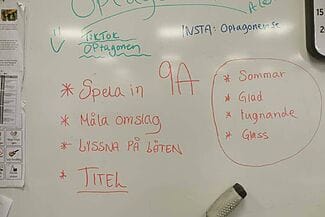 TikTok
Optagonen
INSTA: Optagonense
9A
* Spela in
* Måla omslag
* LYSSNA PÅ LÅTEN
* TITEL
* Sommar
* Glad
* lugnande
* Glass